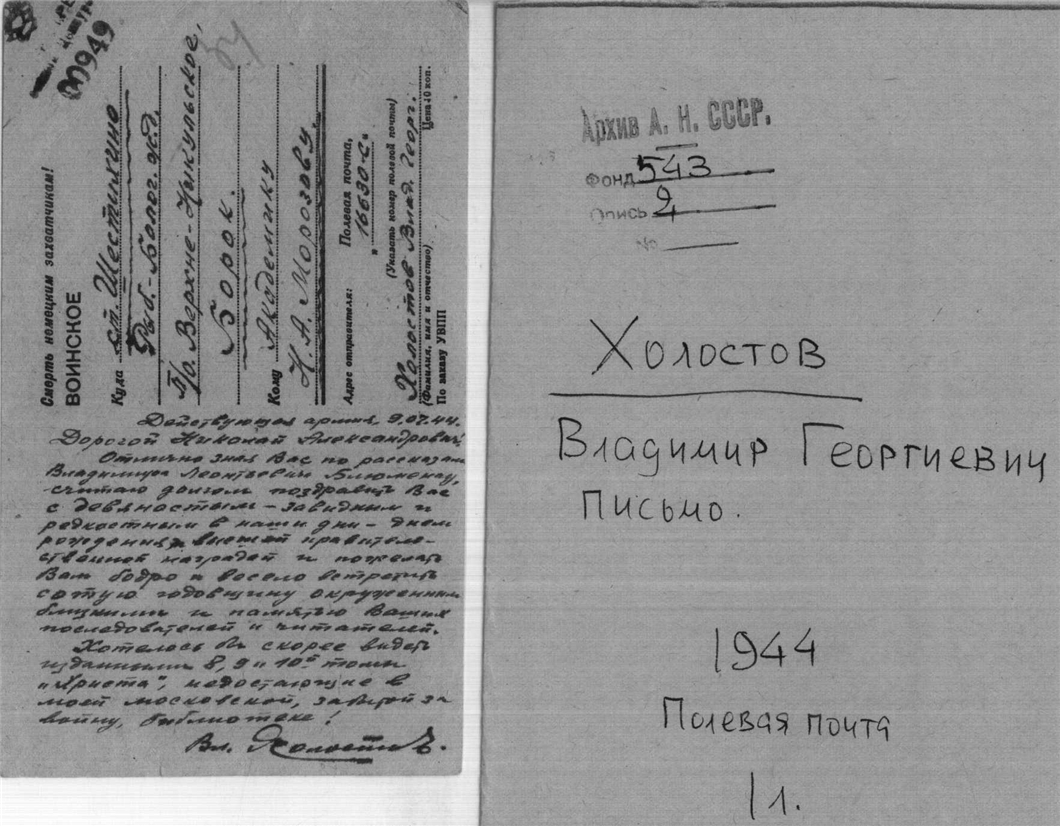 00949
34
Смерть немецким захватчикам!
ВОИНСКОЕ
Куда ст. Шестихино
Рыб.-Болог. ж.д.
п/о. Верхне-Никульское,
Борок.
Кому Академику
Н.А. Морозову.
Адрес отправителя: Полевая почта,
"16630-С"
(Указать номер полевой почты)
Холостов Влад. Георг.
(Фамилия, имя и отчество)
По заказу УВПП Цена 10 коп.
Действующая армия, 9.07.44.
Дорогой Николай Александрович!
Отлично зная Вас по рассказам
Владимира Леонтьевича
считаю долгом поздравить Вас
с девяностым – завидным и
редкостным в наши дни – днем
рождения, высшей правитель-
ственной наградой и пожелать
Вам бодро и весело встретить
сотую годовщину окруженным
близкими и памятью Ваших
последователей и читателей.
Хотелось бы скорее видеть
изданными 8, 9 и 10й томы
"Христа", недостающие в
моей московской, забытой за
войну, библиотеке!
Вл. Холостовъ.
Архив А. Н. СССР.
Фонд 543
Опись 2
No
Холостов
Владимир Георгиевич
Письмо.
1944
Полевая почта
1 л.